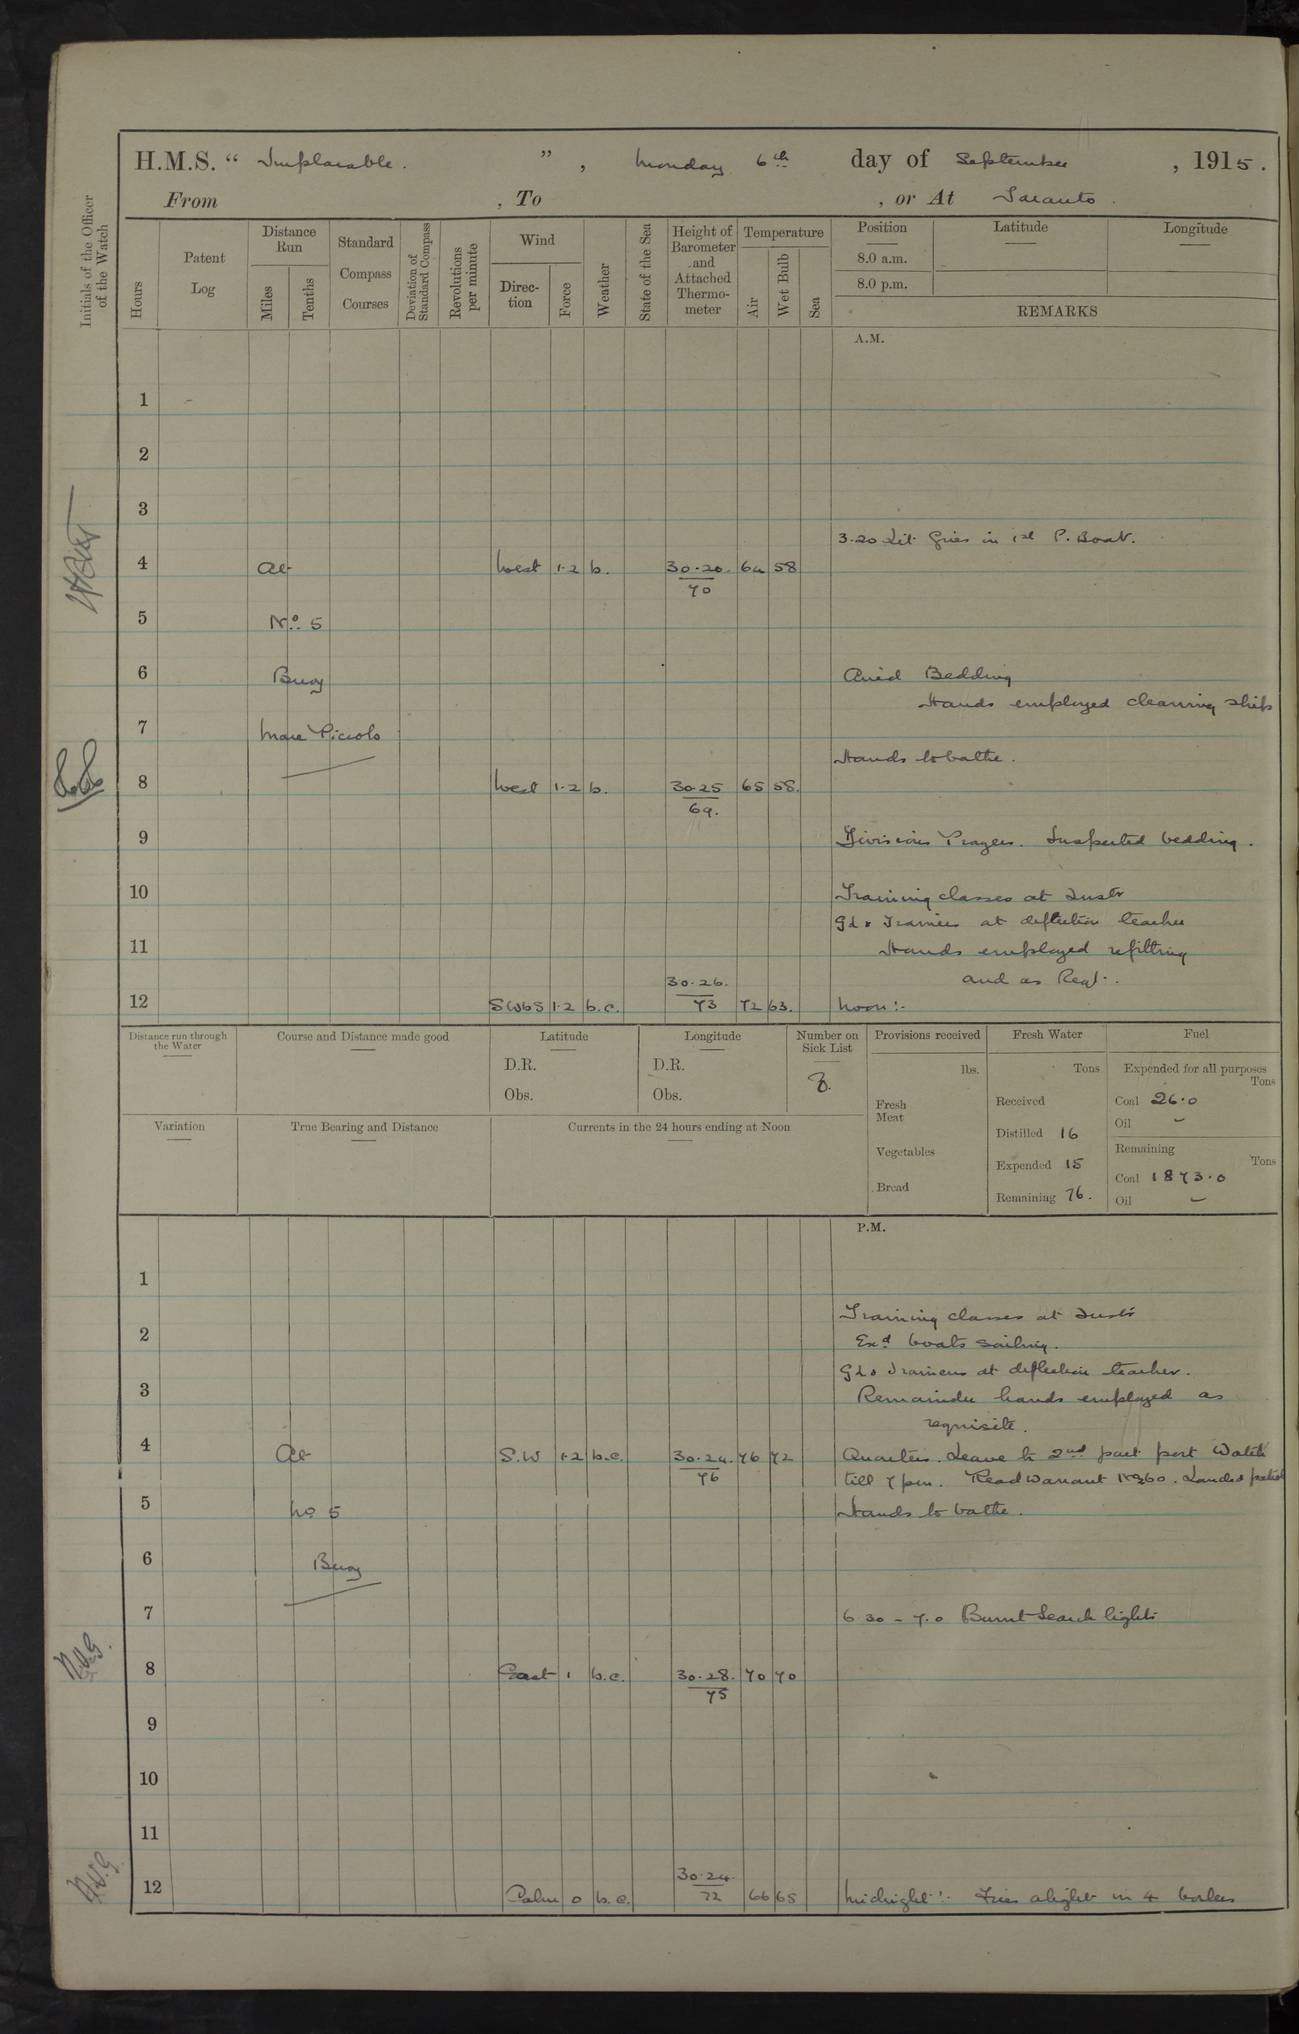 H.M.S. “ Implacable. ” , Monday 6th day of September , 1915.
From , To , or At Taranto.
Initials of the Officer of the Watch
Hours
Patent Log
Distance Run
Miles
Tenths
Standard Compass Courses
Deviation of Standard Compass
Revolutions per minute
Wind
Direction
Force
Weather
State of the Sea
Height of Barometer and Attached Thermometer
Temperature
Air
Wet Bulb
Sea
Position
8.0 a.m.
8.0 p.m.
Latitude
Longitude
REMARKS
A.M.
1
2
3
3.20 Lit fires in 1st P. Boat.
4 At West 1-2 b. 30.20. 64 58
70
5 No. 5
6 Buoy Aired Bedding
Hands employed cleaning ship
7 Mare Piccolo
Hands to bathe.
8 West 1-2 b. 30.25 65 58.
69.
9 Divisions Prayers. Inspected bedding.
10 Training classes at Instr
Gd & Trainers at deflection teacher
11 Hands employed refitting
30.26. and as Req.
12 SWbS 1-2 b.c. 73 72 63. Noon:-
Distance run through the Water
Course and Distance made good
Latitude
D.R.
Obs.
Longitude
D.R.
Obs.
Number on Sick List
8.
Provisions received
lbs.
Fresh Meat
Vegetables
Bread
Fresh Water
Tons
Received
Distilled 16
Expended 15
Remaining 76.
Fuel
Expended for all purposes
Tons
Coal 26.0
Oil –
Remaining
Tons
Coal 1873.0
Oil –
Variation
True Bearing and Distance
Currents in the 24 hours ending at Noon
P.M.
1
Training classes at Instr
2 Exd boats sailing.
Gds Trainers at deflection teacher.
3 Remainder hands employed as
requisite.
4 At S.W 1-2 b.c. 30.24. 76 72 Quarters. Leave to 2nd part port Watch
76 till 7 pm. Read Warrant No 60. Landed patrol
5 No 5 Hands to bathe.
6 Buoy
7 6.30 - 7.0 Burnt Search lights
8 East 1 b.c. 30.28. 70 70
75
9
10
11
30.24.
12 Calm 0 b.c. 72 66 65 Midnight:- Fires alight in 4 boilers